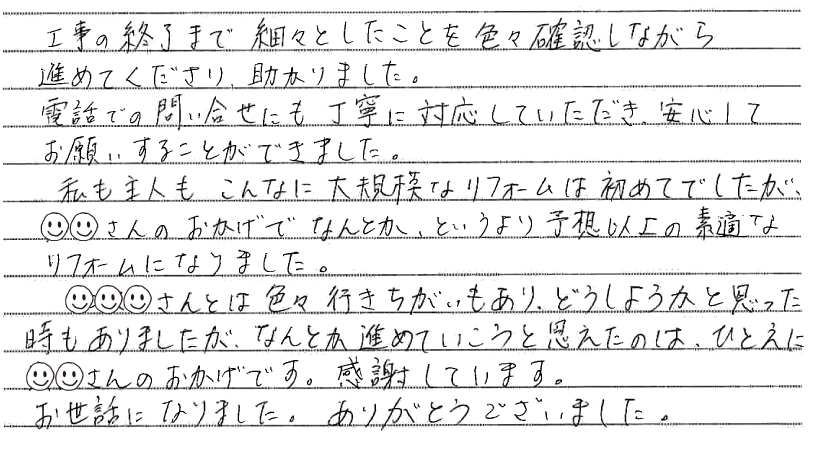 工事の終了まで細々としたことを色々確認しながら
進めてくださり、助かりました。
電話での問い合せにも丁寧に対応していただき、安心して
お願いすることができました。
私も主人もこんなに大規模なリフォームは初めてでしたが、
☺☺さんのおかげでなんとか、というより予想以上の素適な
リフォームになりました。
☺☺☺さんとは色々行きちがいもあり、どうしようかと思った
時もありましたが、なんとか進めていこうと思えたのは、ひとえに
☺☺さんのおかげです。感謝しています。
お世話になりました。ありがとうございました。